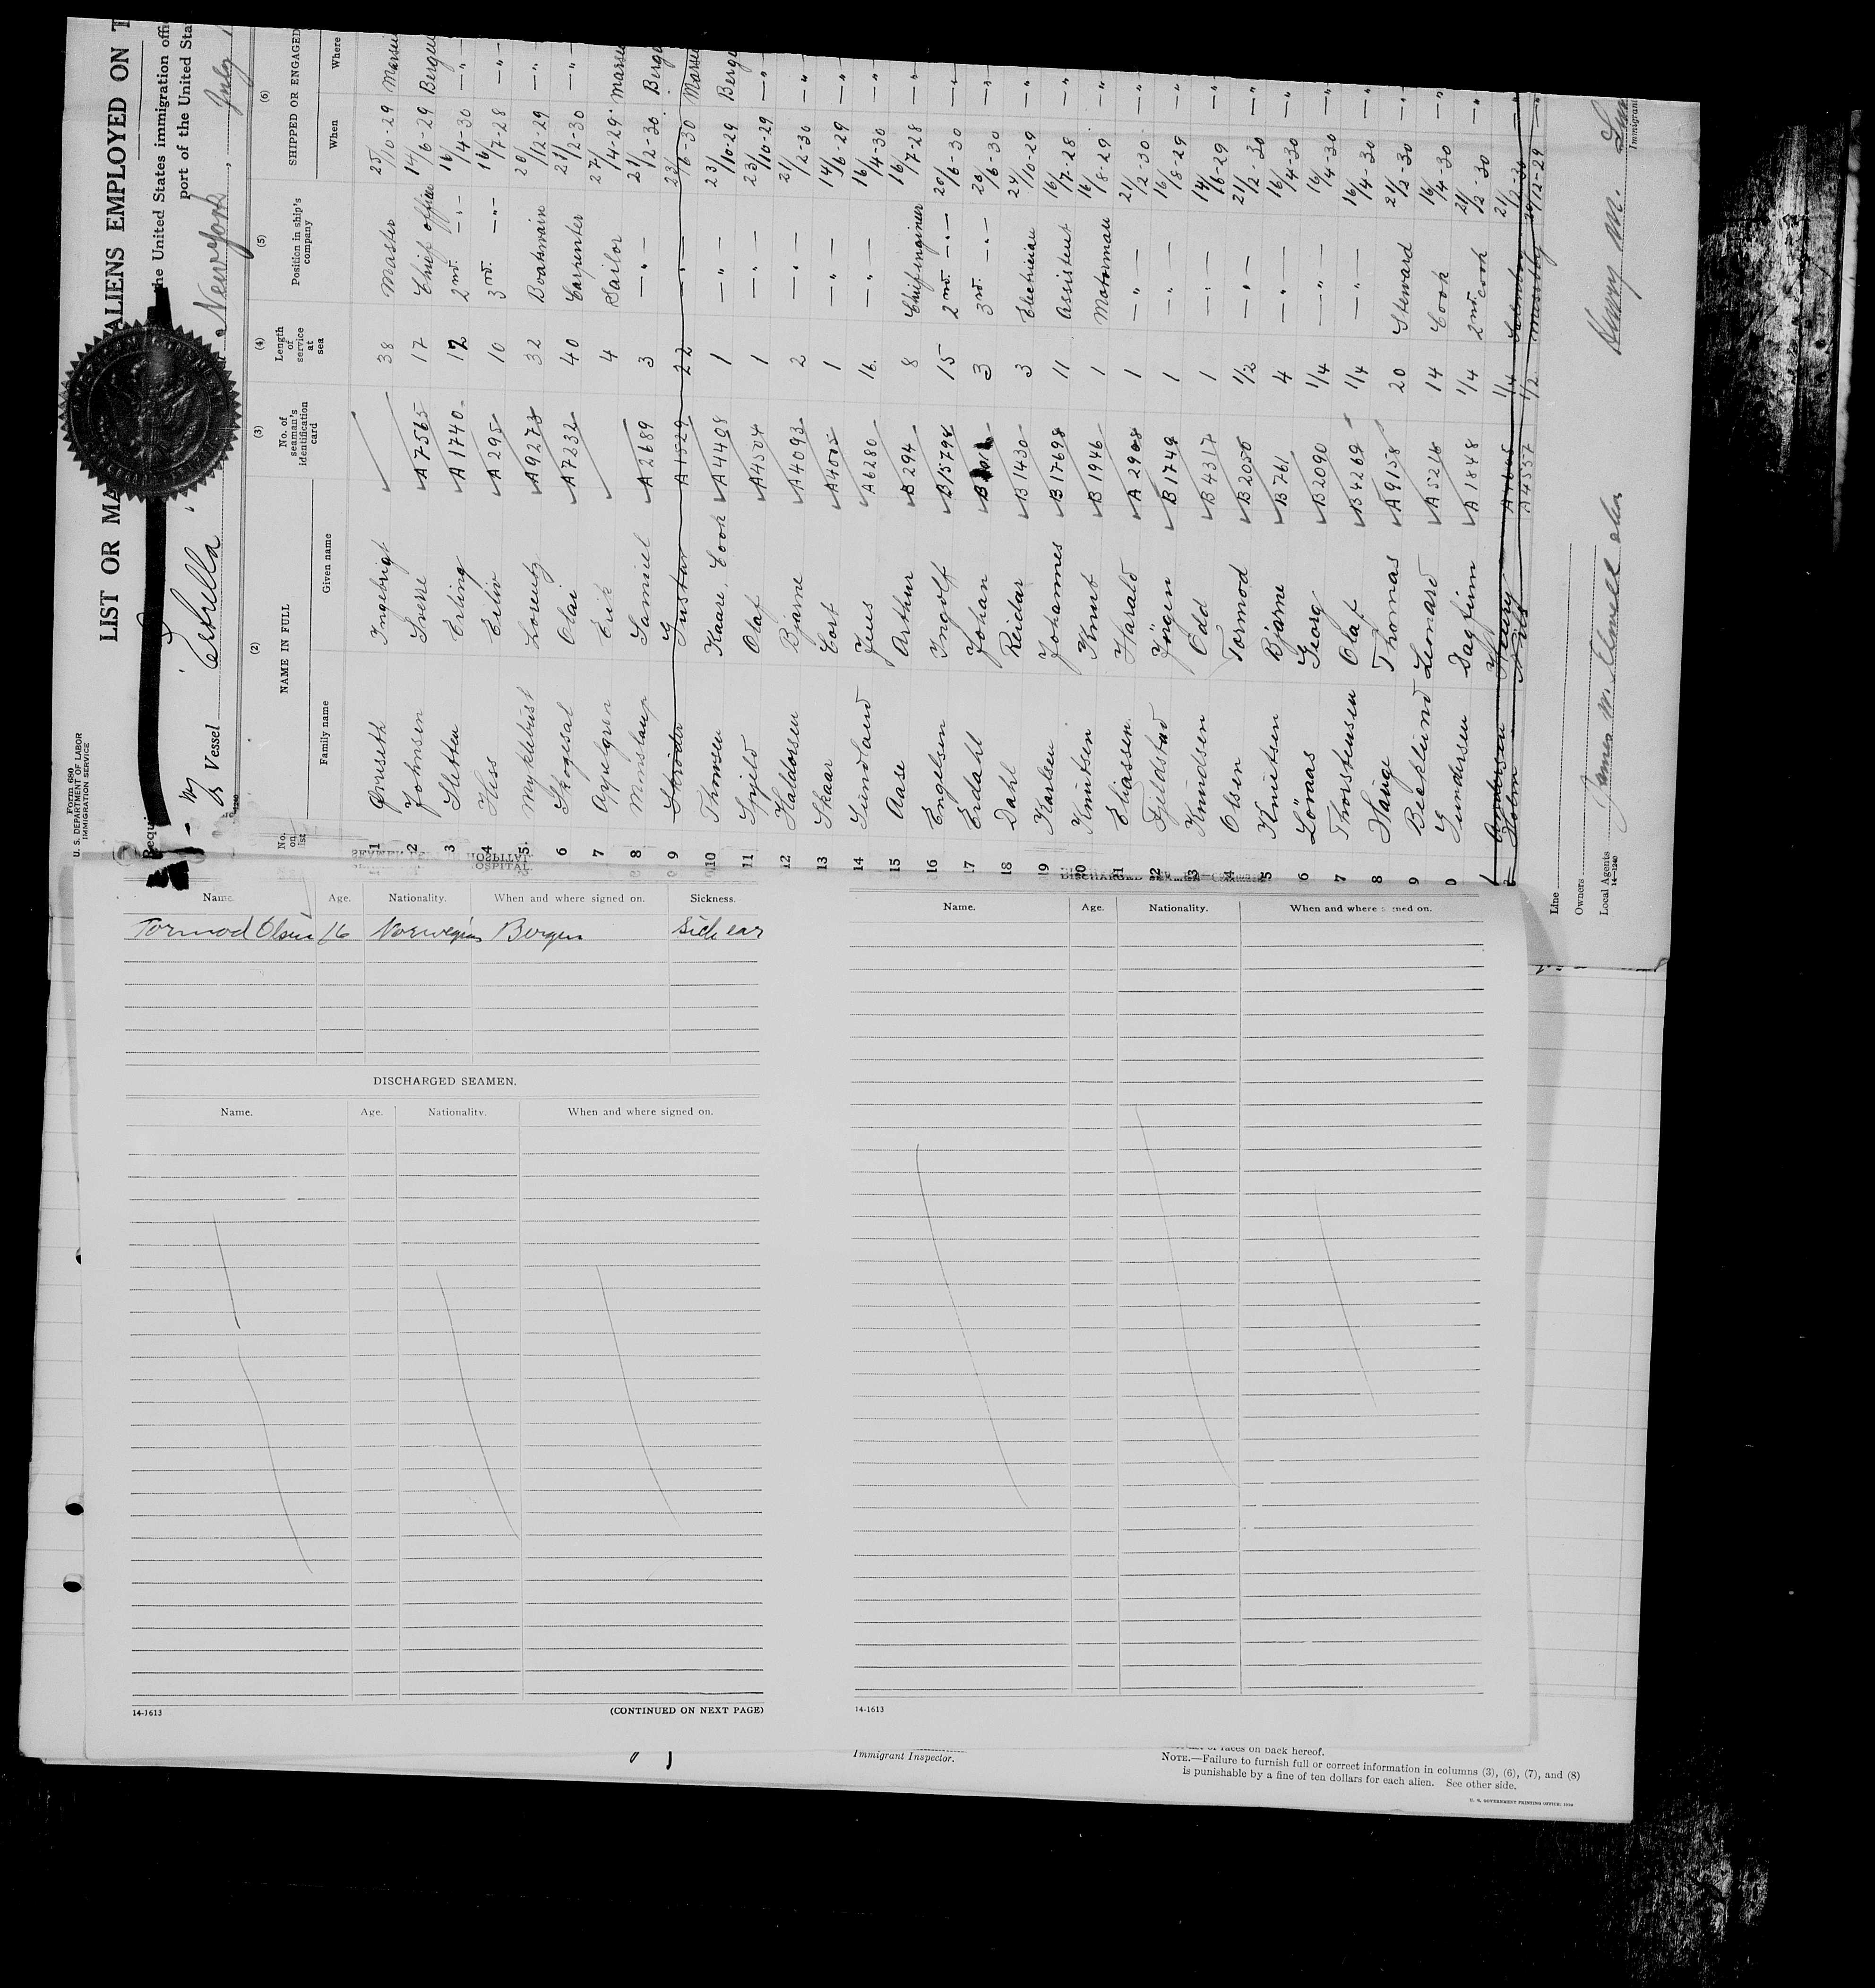 Form 680
U. S. DEPARTMENT OF LABOR
IMMIGRATION SERVICE
LIST OR MA ALIENS EMPLOYED ON T
Requi the United States immigration offi
port of the United Sta
Vessel Estrella , Newyork , July
(2) (3) (4) (5) (6)
No. on list NAME IN FULL No. of seaman's identification card Length of service at sea Position in ship's company SHIPPED OR ENGAGED
Family name Given name When Where
1 Ingebrigt 38 Master 25/10-29 Marsei
2 Johnsen Sverre A7565 17 Chief officer 14/6-29 Bergen
3 Sletten Erling A1740 12 2nd. -"- 16/4-30 -"-
4 Hiss A295 10 3rd. -"- 16/7-28 -"-
5 Myklebust Lorentz A9273 32 Boatswain 20/12-29 -"-
6 Skogesal Olai A7232 40 Carpenter 21/2-30 -"-
7 Appelgren Erik 4 Sailor 27/14-29 Marsei
8 Samuel A2689 3 -"- 21/2-30 Berge
9 Schröder Gustav A1529 22 -"- 23/6-30 Marsei
10 Thomsen Kaare, Cook A4408 1 -"- 23/10-29 Berge
11 Olaf A4504 1 -"- 23/10-29 -"-
12 Haldorsen Bjarne A4093 2 -"- 21/2-30 -"-
13 Skaar Cort A4005 1 -"- 14/6-29 -"-
14 Sundland Jens A6280 16 -"- 16/4-30 -"-
15 Aase Arthur B294 8 Chief ingineer 16/7-28 -"-
16 Engelsen Ingolf B15794 15 2nd. -"- 20/6-30 -"-
17 Erdahl Johan 3 3rd. -"- 20/6-30 -"-
18 Dahl Reidar B1430 3 Electrician 24/10-29 -"-
19 Karlsen Johannes B17698 11 Assistent 16/7-28 -"-
20 Knutsen Knut B1946 1 Motorman 16/8-29 -"-
21 Eliassen Harald A2908 1 -"- 21/2-30 -"-
22 Fjeldstad Jörgen B1749 1 -"- 16/8-29 -"-
23 Knudsen Odd B4317 1 -"- 14/6-29 -"-
24 Olsen Tormod B2050 1/2 -"- 21/2-30 -"-
5 Knutsen Bjarne B761 4 -"- 16/4-30 -"-
6 Löraas Georg B2090 1/4 -"- 16/4-30 -"-
7 Thorstensen Olaf B4269 1/4 -"- 16/4-30 -"-
8 Hauge Thomas A9158 20 Steward 21/2-30 -"-
9 Becklund Lennard A5216 14 Cook 16/4-30 -"-
0 Gundersen Dagfinn A1848 1/4 2nd. cook 21/2-30 -"-
Andersen Henry 1/4 21/2-30 -"-
Holm Nils A4557 1/2 messboy 20/12-29 -"-
Line
Owners
Local Agents James W. Elwell & Co
14-1240
Henry M.
Immigrant
SEAMEN IN HOSPITAL
Name. Age. Nationality. When and where signed on. Sickness.
Tormod Olsen 16 Norwegian Bergen Sick ear
DISCHARGED SEAMEN.
Name. Age. Nationality. When and where signed on.
14-1613
(CONTINUED ON NEXT PAGE)
DISCHARGED
Name. Age. Nationality. When and where signed on.
14-1613
Immigrant Inspector.
of races on back hereof.
NOTE.—Failure to furnish full or correct information in columns (3), (6), (7), and (8)
is punishable by a fine of ten dollars for each alien. See other side.
U. S. GOVERNMENT PRINTING OFFICE: 1929